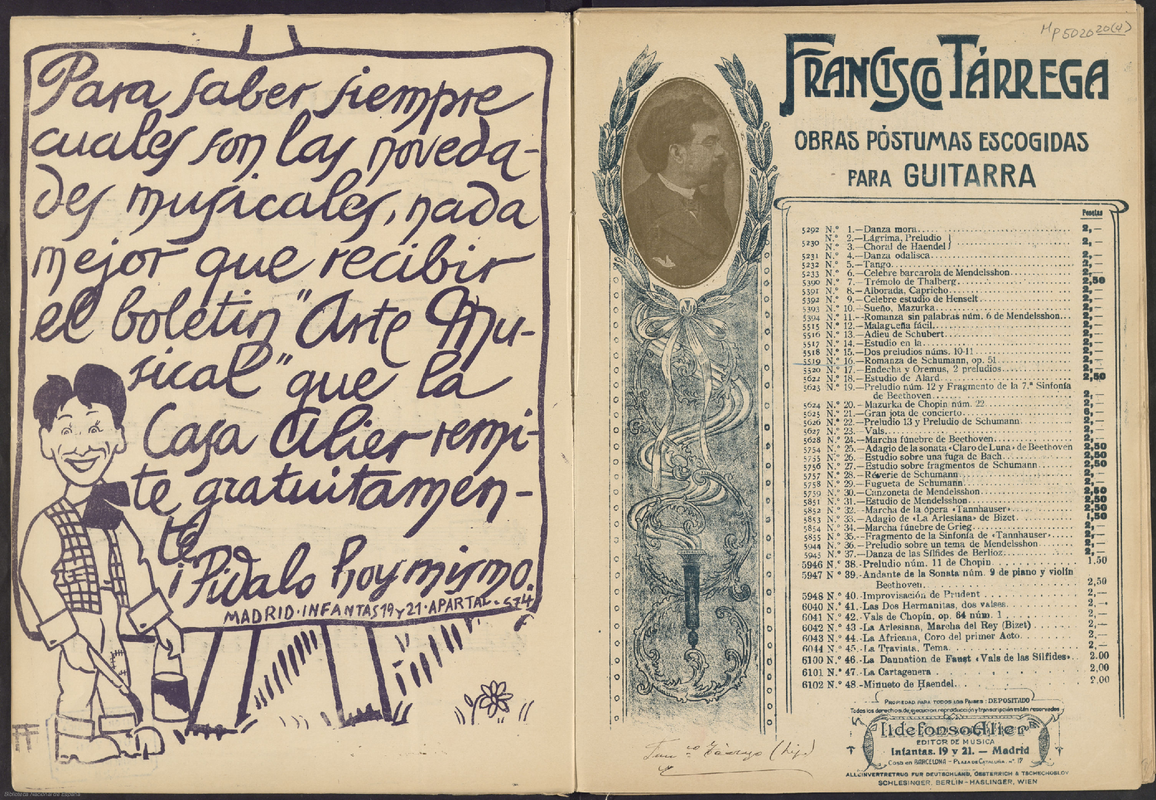 Para saber siempre
cuales son las noveda-
des musicales, nada
mejor que recibir
el boletin "Arte Mu-
sical" que la
Casa Alier remi-
te gratuitamen-
te
¡Pidalo hoy mismo.
MADRID·INFANTAS 19 y 21·APARTAD.·574
MP5020 20(4)
FRANCISCO TÁRREGA
OBRAS PÓSTUMAS ESCOGIDAS
PARA GUITARRA
Pesetas
5292 N.º 1.—Danza mora 2,—
N.º 2.—Lágrima, Preludio
5230 N.º 3.—Choral de Haendel 2,—
5231 N.º 4.—Danza odalisca 2,—
5232 N.º 5.—Tango 2,—
5233 N.º 6.—Célebre barcarola de Mendelsshon 2,—
5390 N.º 7.—Trémolo de Thalberg 2,50
5391 N.º 8.—Alborada, Capricho 2,—
5392 N.º 9.—Célebre estudio de Henselt 2,—
5393 N.º 10.—Sueño, Mazurka 2,—
5394 N.º 11.—Romanza sin palabras núm. 6 de Mendelsshon 2,—
5515 N.º 12.—Malagueña fácil 2,—
5516 N.º 13.—Adieu de Schubert 2,—
5517 N.º 14.—Estudio en la 2,—
5518 N.º 15.—Dos preludios núms. 10-11 2,—
5519 N.º 16.—Romanza de Schumann, op. 51 2,—
5520 N.º 17.—Endecha y Oremus, 2 preludios 2,—
5622 N.º 18.—Estudio de Alard 2,50
5623 N.º 19.—Preludio núm. 12 y Fragmento de la 7.ª Sinfonía
de Beethoven 2,—
5624 N.º 20.—Mazurka de Chopin núm. 22 2,—
5625 N.º 21.—Gran jota de concierto 6,—
5626 N.º 22.—Preludio 13 y Preludio de Schumann 2,—
5627 N.º 23.—Vals 2,—
5628 N.º 24.—Marcha fúnebre de Beethoven 2,—
5754 N.º 25.—Adagio de la sonata «Claro de Luna» de Beethoven 2,50
5755 N.º 26.—Estudio sobre una fuga de Bach 2,50
5756 N.º 27.—Estudio sobre fragmentos de Schumann 2,50
5757 N.º 28.—Rêverie de Schumann 2,—
5758 N.º 29.—Fugueta de Schumann 2,—
5759 N.º 30.—Canzoneta de Mendelsshon 2,50
5851 N.º 31.—Estudio de Mendelsshon 2,50
5852 N.º 32.—Marcha de la ópera «Tannhauser» 2,50
5853 N.º 33.—Adagio de «La Arlesiana» de Bizet 1,50
5854 N.º 34.—Marcha fúnebre de Grieg 2,—
5855 N.º 35.—Fragmento de la Sinfonía de «Tannhauser» 2,—
5944 N.º 36.—Preludio sobre un tema de Mendelsshon 2,—
5945 N.º 37.—Danza de las Sílfides de Berlioz 2,—
5946 N.º 38.—Preludio núm. 11 de Chopin 1,50
5947 N.º 39.—Andante de la Sonata núm. 9 de piano y violín
Beethoven 2,50
5948 N.º 40.—Improvisación de Prudent 2,—
6040 N.º 41.—Las Dos Hermanitas, dos valses 2,—
6041 N.º 42.—Vals de Chopin, op. 64 núm. 1 2,—
6042 N.º 43.—La Arlesiana, Marcha del Rey (Bizet) 2,—
6043 N.º 44.—La Africana, Coro del primer Acto 2,—
6044 N.º 45.—La Traviata, Tema 2,—
6100 N.º 46.—La Daunation de Faust «Vals de las Silfides» 2.00
6101 N.º 47.—La Cartagenera 2,00
6102 N.º 48.—Minueto de Haendel 2.00
PROPIEDAD PARA TODOS LOS PAISES : DEPOSITADO
Todos los derechos de ejecución, reproducción y transcripción están reservados
Ildefonso Alier
EDITOR DE MÚSICA
Infantas, 19 y 21. — Madrid
Casa en BARCELONA — PLAZA DE CATALUÑA, n.º 17
ALLEINVERTRETUNG FUR DEUTSCHLAND, ÖSTERREICH & TSCHECHOSLOV
SCHLESINGER, BERLIN-HASLINGER, WIEN
Fran.co Tárrega (hijo)
Biblioteca Nacional de España